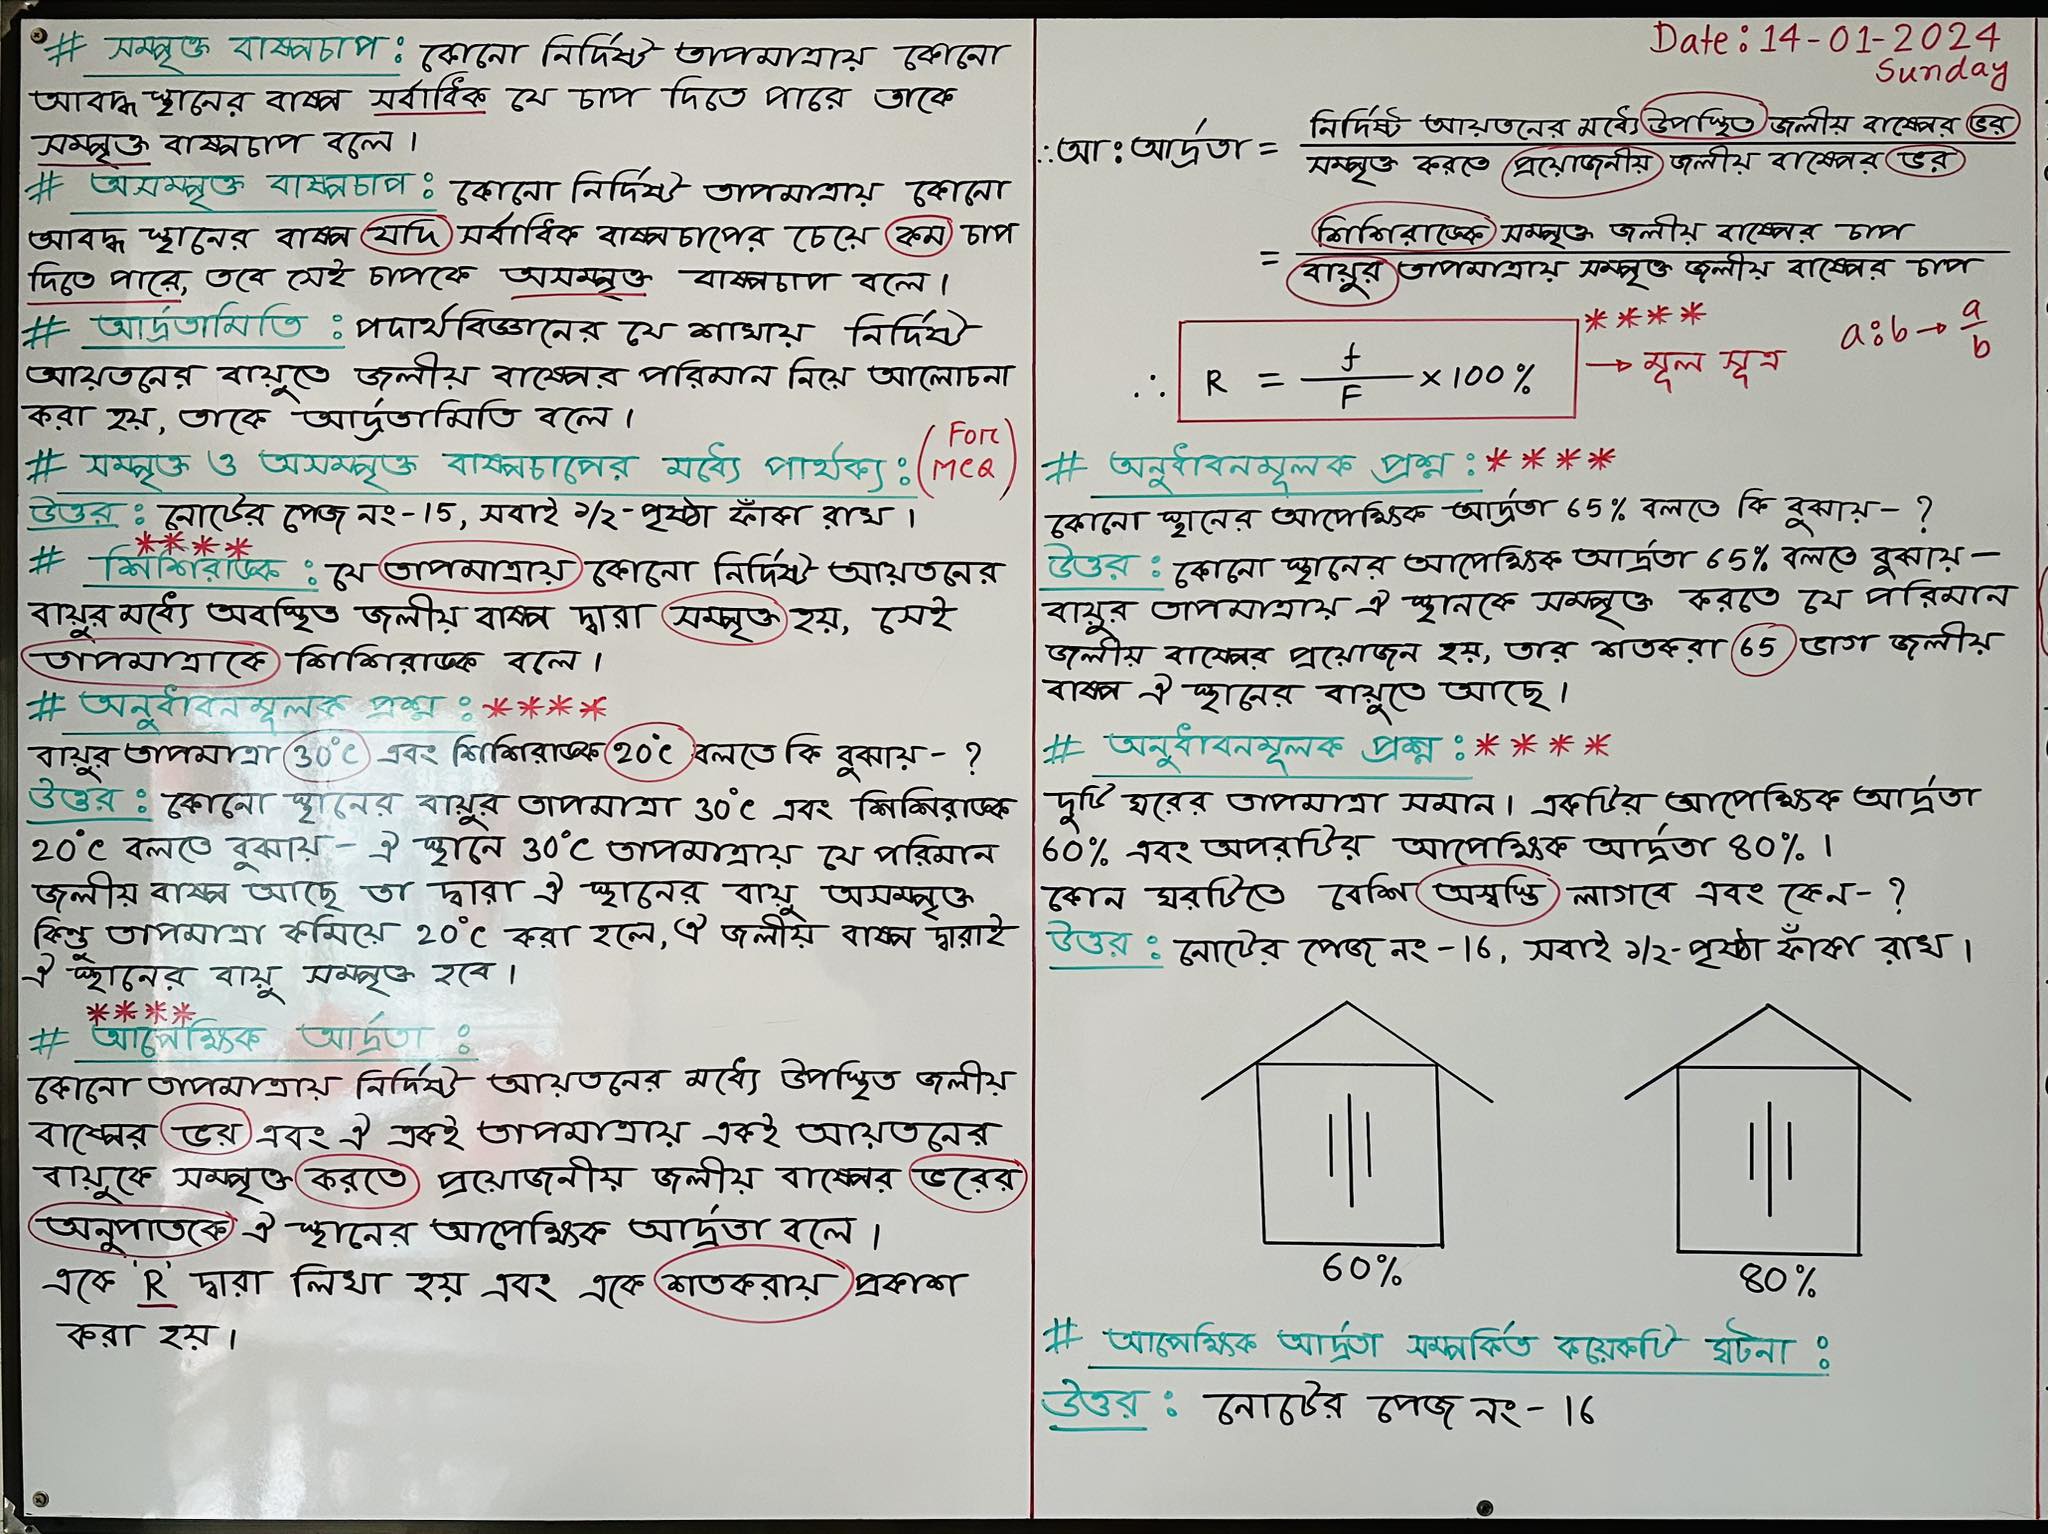 # সম্পৃক্ত বাষ্পচাপ : কোনো নির্দিষ্ট তাপমাত্রায় কোনো
আবদ্ধ স্থানের বাষ্প সর্বাধিক যে চাপ দিতে পারে তাকে
সম্পৃক্ত বাষ্পচাপ বলে।
# অসম্পৃক্ত বাষ্পচাপ : কোনো নির্দিষ্ট তাপমাত্রায় কোনো
আবদ্ধ স্থানের বাষ্প যদি সর্বাধিক বাষ্পচাপের চেয়ে কম চাপ
দিতে পারে, তবে সেই চাপকে অসম্পৃক্ত বাষ্পচাপ বলে।
# আর্দ্রতামিতি : পদার্থবিজ্ঞানের যে শাখায় নির্দিষ্ট
আয়তনের বায়ুতে জলীয় বাষ্পের পরিমান নিয়ে আলোচনা
করা হয়, তাকে আর্দ্রতামিতি বলে।
# সম্পৃক্ত ও অসম্পৃক্ত বাষ্পচাপের মধ্যে পার্থক্য : (For MCQ)
উত্তর : নোটের পেজ নং-15, সবাই ১/২-পৃষ্ঠা ফাঁকা রাখ।
****
# শিশিরাঙ্ক : যে তাপমাত্রায় কোনো নির্দিষ্ট আয়তনের
বায়ুর মধ্যে অবস্থিত জলীয় বাষ্প দ্বারা সম্পৃক্ত হয়, সেই
তাপমাত্রাকে শিশিরাঙ্ক বলে।
# অনুধাবনমূলক প্রশ্ন : ****
বায়ুর তাপমাত্রা 30°C এবং শিশিরাঙ্ক 20°C বলতে কি বুঝায়-?
উত্তর : কোনো স্থানের বায়ুর তাপমাত্রা 30°C এবং শিশিরাঙ্ক
20°C বলতে বুঝায়- ঐ স্থানে 30°C তাপমাত্রায় যে পরিমান
জলীয় বাষ্প আছে তা দ্বারা ঐ স্থানের বায়ু অসম্পৃক্ত
কিন্তু তাপমাত্রা কমিয়ে 20°C করা হলে, ঐ জলীয় বাষ্প দ্বারাই
ঐ স্থানের বায়ু সম্পৃক্ত হবে।
****
# আপেক্ষিক আর্দ্রতা :
কোনো তাপমাত্রায় নির্দিষ্ট আয়তনের মধ্যে উপস্থিত জলীয়
বাষ্পের ভর এবং ঐ একই তাপমাত্রায় একই আয়তনের
বায়ুকে সম্পৃক্ত করতে প্রয়োজনীয় জলীয় বাষ্পের ভরের
অনুপাতকে ঐ স্থানের আপেক্ষিক আর্দ্রতা বলে।
একে 'R' দ্বারা লিখা হয় এবং একে শতকরায় প্রকাশ
করা হয়।
Date : 14-01-2024
Sunday
∴ আ : আর্দ্রতা = নির্দিষ্ট আয়তনের মধ্যে উপস্থিত জলীয় বাষ্পের ভর
সম্পৃক্ত করতে প্রয়োজনীয় জলীয় বাষ্পের ভর
= শিশিরাঙ্কে সম্পৃক্ত জলীয় বাষ্পের চাপ
বায়ুর তাপমাত্রায় সম্পৃক্ত জলীয় বাষ্পের চাপ
∴ R = f/F × 100% **** → মূল সূত্র
a:b → a/b
# অনুধাবনমূলক প্রশ্ন : ****
কোনো স্থানের আপেক্ষিক আর্দ্রতা 65% বলতে কি বুঝায়-?
উত্তর : কোনো স্থানের আপেক্ষিক আর্দ্রতা 65% বলতে বুঝায়-
বায়ুর তাপমাত্রায় ঐ স্থানকে সম্পৃক্ত করতে যে পরিমান
জলীয় বাষ্পের প্রয়োজন হয়, তার শতকরা 65 ভাগ জলীয়
বাষ্প ঐ স্থানের বায়ুতে আছে।
# অনুধাবনমূলক প্রশ্ন : ****
দুটি ঘরের তাপমাত্রা সমান। একটির আপেক্ষিক আর্দ্রতা
60% এবং অপরটির আপেক্ষিক আর্দ্রতা 80%।
কোন ঘরটিতে বেশি অস্বস্তি লাগবে এবং কেন-?
উত্তর : নোটের পেজ নং-16, সবাই ১/২-পৃষ্ঠা ফাঁকা রাখ।
60%
80%
# আপেক্ষিক আর্দ্রতা সম্পর্কিত কয়েকটি ঘটনা :
উত্তর : নোটের পেজ নং-16